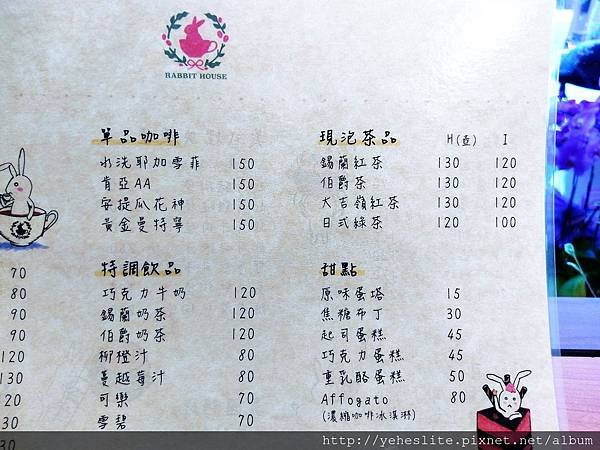 RABBIT HOUSE
單品咖啡
水洗耶加雪菲 150
肯亞AA 150
安提瓜花神 150
黃金曼特寧 150
現泡茶品 H(壺) I
錫蘭紅茶 130 120
伯爵茶 130 120
大吉嶺紅茶 130 120
日式綠茶 120 100
70
80
90
90
120
130
120
130
特調飲品
巧克力牛奶 120
錫蘭奶茶 120
伯爵奶茶 120
柳橙汁 80
蔓越莓汁 80
可樂 70
雪碧 70
甜點
原味蛋塔 15
焦糖布丁 30
起司蛋糕 45
巧克力蛋糕 45
重乳酪蛋糕 50
Affogato 80
(濃縮咖啡冰淇淋)
http://yeheslite.pixnet.net/album